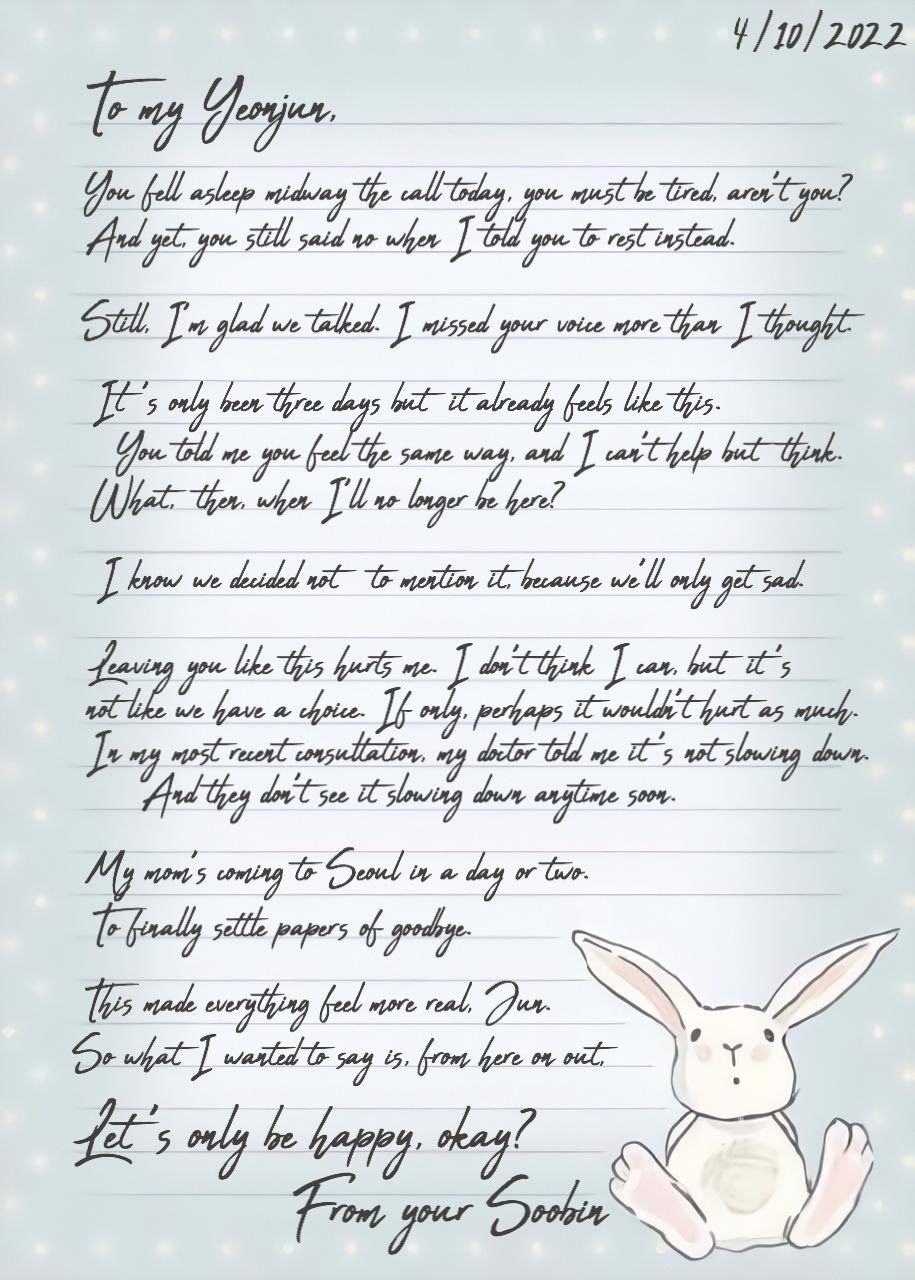 4/10/2022
To my Yeonjun,
You fell asleep midway the call today, you must be tired, aren't you?
And yet, you still said no when I told you to rest instead.
Still, I'm glad we talked. I missed your voice more than I thought.
It's only been three days but it already feels like this.
You told me you feel the same way, and I can't help but think.
What, then, when I'll no longer be here?
I know we decided not to mention it, because we'll only get sad.
Leaving you like this hurts me. I don't think I can, but it's
not like we have a choice. If only, perhaps it wouldn't hurt as much.
In my most recent consultation, my doctor told me it's not slowing down.
And they don't see it slowing down anytime soon.
My mom's coming to Seoul in a day or two.
To finally settle papers of goodbye.
This made everything feel more real, Jun.
So what I wanted to say is, from here on out,
Let's only be happy, okay?
From your Soobin